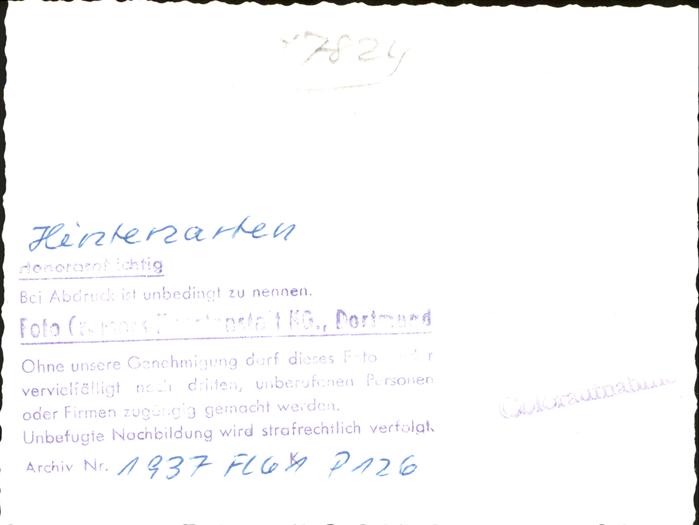 7824
Hinterzarten
Bei Abdruck ist unbedingt zu nennen.
Foto KG., Dortmund
Ohne unsere Genehmigung darf dieses Foto
vervielfältigt noch dritten, unberufenen Personen
oder Firmen zugängig gemacht werden.
Unbefugte Nachbildung wird strafrechtlich verfolgt.
Archiv Nr. 1937 P126